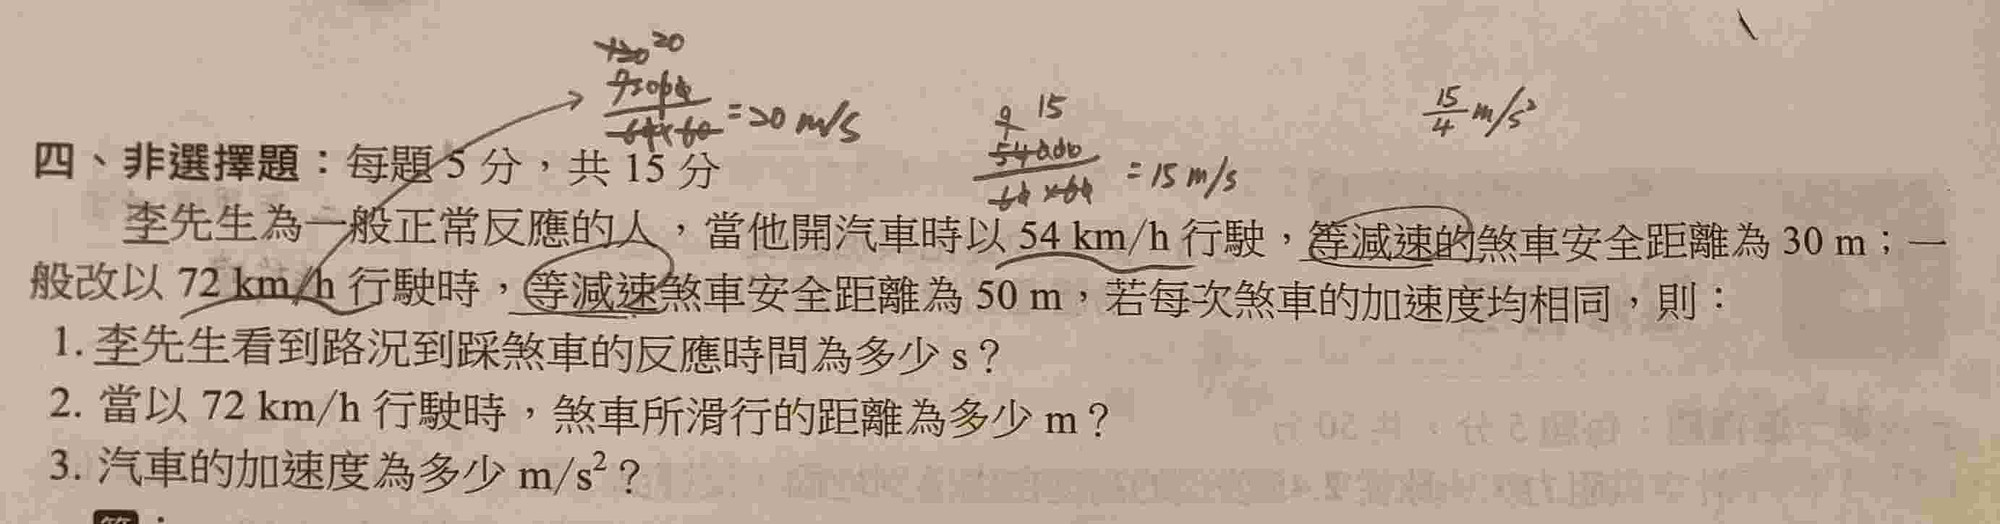 20
= 20 m/s
15
= 15 m/s
15/4 m/s²
四、非選擇題：每題 5 分，共 15 分
李先生為一般正常反應的人，當他開汽車時以 54 km/h 行駛，等減速的煞車安全距離為 30 m；一
般改以 72 km/h 行駛時，等減速煞車安全距離為 50 m，若每次煞車的加速度均相同，則：
1. 李先生看到路況到踩煞車的反應時間為多少 s？
2. 當以 72 km/h 行駛時，煞車所滑行的距離為多少 m？
3. 汽車的加速度為多少 m/s²？